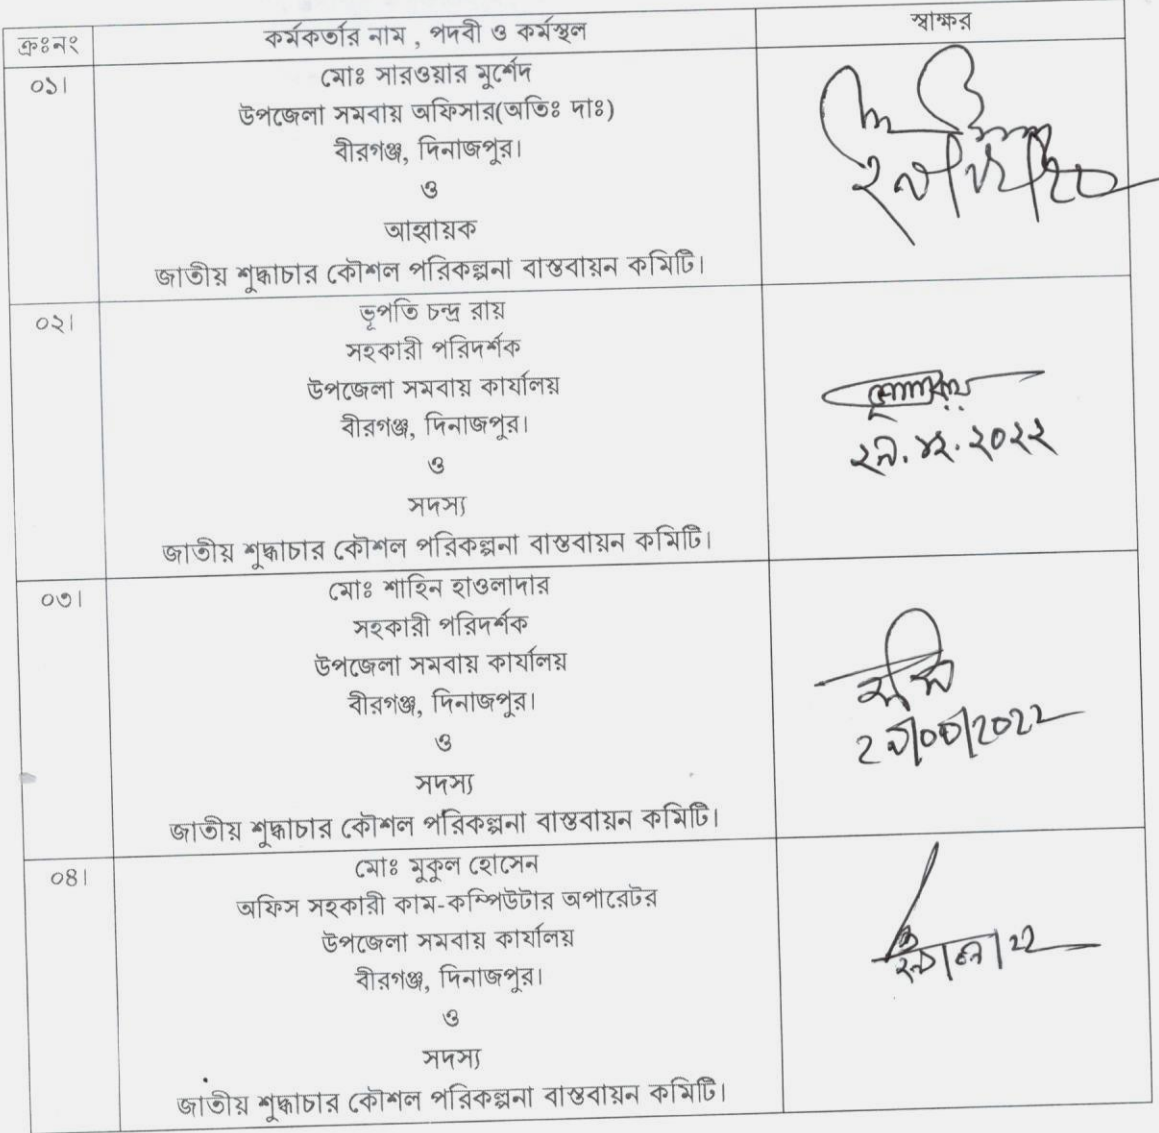 ক্রঃনং কর্মকর্তার নাম , পদবী ও কর্মস্থল স্বাক্ষর
০১। মোঃ সারওয়ার মুর্শেদ
উপজেলা সমবায় অফিসার(অতিঃ দাঃ)
বীরগঞ্জ, দিনাজপুর।
ও
আহ্বায়ক
জাতীয় শুদ্ধাচার কৌশল পরিকল্পনা বাস্তবায়ন কমিটি।
০২। ভূপতি চন্দ্র রায়
সহকারী পরিদর্শক
উপজেলা সমবায় কার্যালয়
বীরগঞ্জ, দিনাজপুর।
ও
সদস্য
জাতীয় শুদ্ধাচার কৌশল পরিকল্পনা বাস্তবায়ন কমিটি।
০৩। মোঃ শাহিন হাওলাদার
সহকারী পরিদর্শক
উপজেলা সমবায় কার্যালয়
বীরগঞ্জ, দিনাজপুর।
ও
সদস্য
জাতীয় শুদ্ধাচার কৌশল পরিকল্পনা বাস্তবায়ন কমিটি।
০৪। মোঃ মুকুল হোসেন
অফিস সহকারী কাম-কম্পিউটার অপারেটর
উপজেলা সমবায় কার্যালয়
বীরগঞ্জ, দিনাজপুর।
ও
সদস্য
জাতীয় শুদ্ধাচার কৌশল পরিকল্পনা বাস্তবায়ন কমিটি।